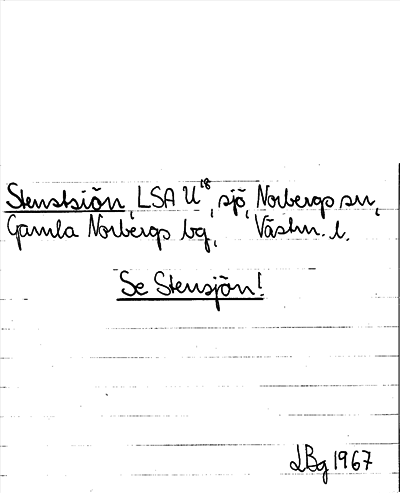 Stenstsiön, LSA U18, sjö, Norbergs sn,
Gamla Norbergs bg, Västm. l.
Se Stensjön!
LBg 1967